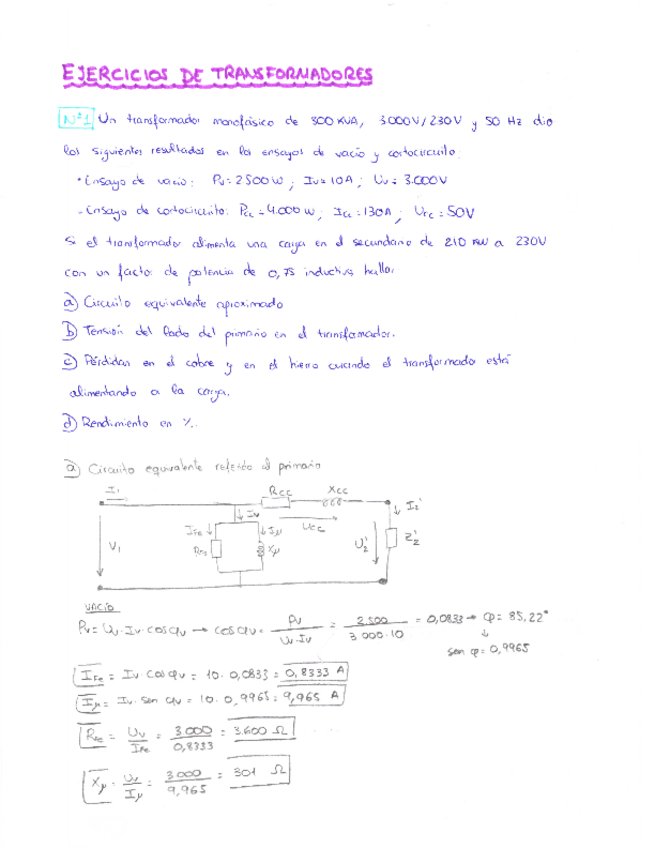 EJERCICIOS DE TRANSFORMADORES
Nº1 Un transformador monofásico de 500 KVA, 3000V/230V y 50 Hz dio
los siguientes resultados en los ensayos de vacío y cortocircuito:
· Ensayo de vacío: Pv = 2500 w ; Iv = 10A ; Uv = 3.000V
- Ensayo de cortocircuito: Pcc = 4.000 w ; Icc = 130A ; Ucc = 50V
Si el transformador alimenta una carga en el secundario de 210 KW a 230V
con un factor de potencia de 0,75 inductivo, hallar
a) Circuito equivalente aproximado
b) Tensión del lado del primario en el transformador.
c) Pérdidas en el cobre y en el hierro cuando el transformador está
alimentando a la carga.
d) Rendimiento en %.
a) Circuito equivalente referido al primario
I1 Rcc Xcc I2'
Iv Ucc
IFe Iμ
V1 RFe Xμ U2' Z2'
VACÍO
Pv = Uv · Iv · cos φv → cos φv = Pv / Uv · Iv = 2.500 / 3.000 · 10 = 0,0833 → φ = 85,22°
↓
sen φ = 0,9965
IFe = Iv · cos φv = 10 · 0,0833 = 0,8333 A
Iμ = Iv · sen φv = 10 · 0,9965 = 9,965 A
RFe = Uv / IFe = 3.000 / 0,8333 = 3.600 Ω
Xμ = Uv / Iμ = 3.000 / 9,965 = 301 Ω